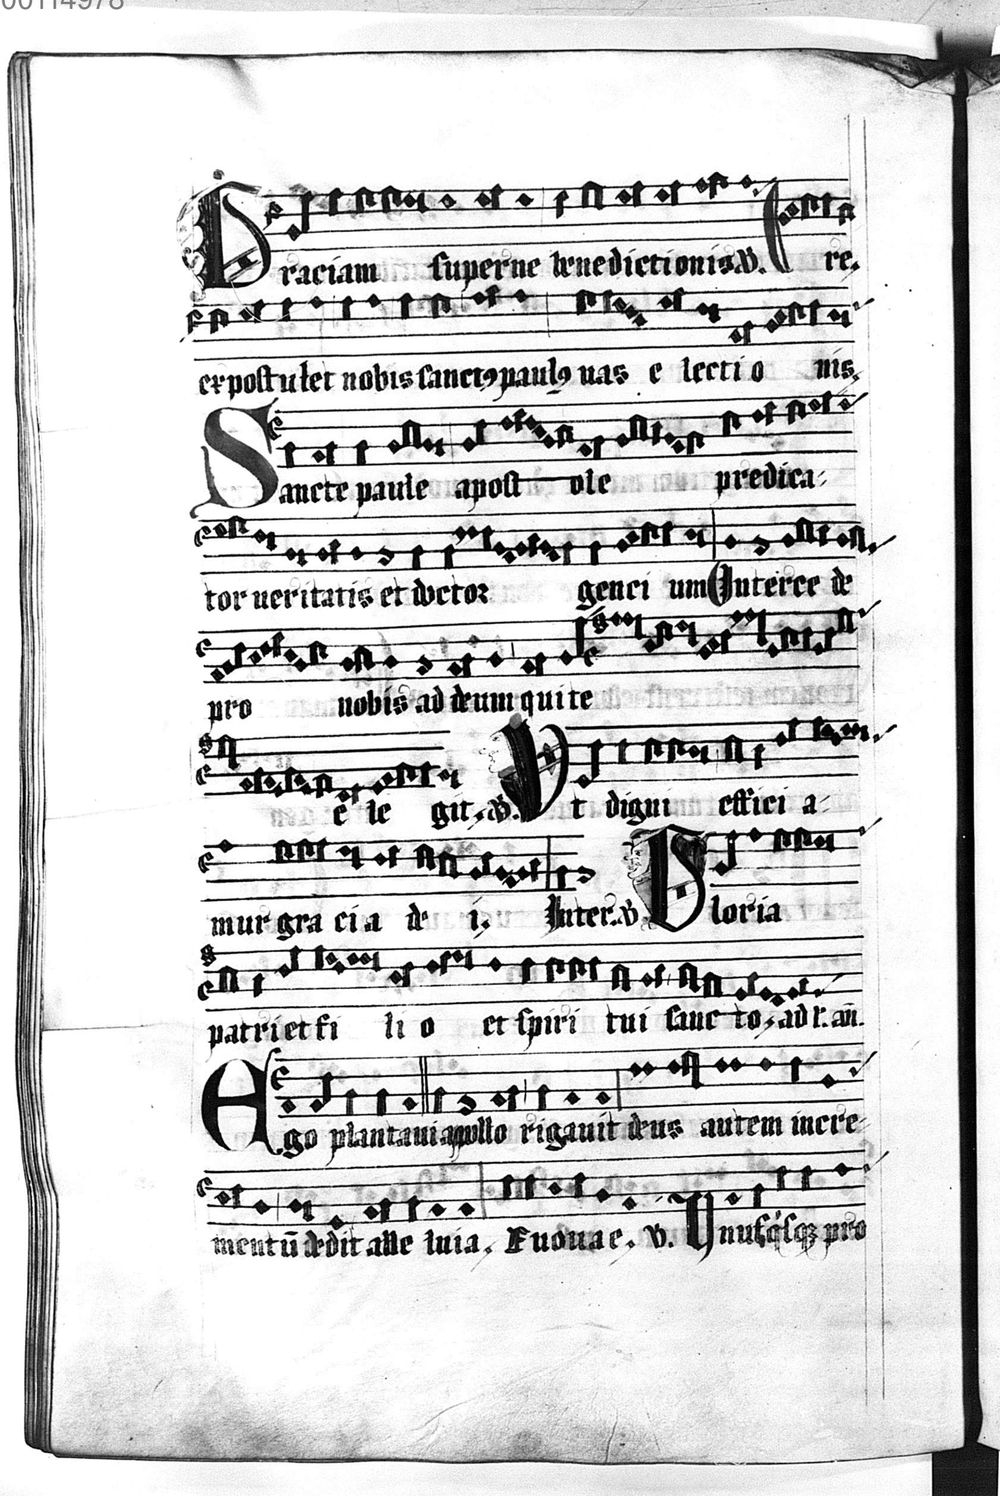 00114978
Graciam superne benedictionis. V. re.
expostulet nobis sanctꝰ paulꝰ uas e lecti o nis.
Sancte paule apost ole predica-
tor ueritatis et doctor genci um Interce de
pro nobis ad deum qui te
e le git. V. Ut digni effici a-
mur gra cia de i. Inter. V. Gloria
patri et fi li o et spiri tui sanc to. ad r. añ.
Ego plantaui apollo rigauit deus autem incre-
mentū dedit alle luia. Euouae. V. Unusqͥsqꝫ pro